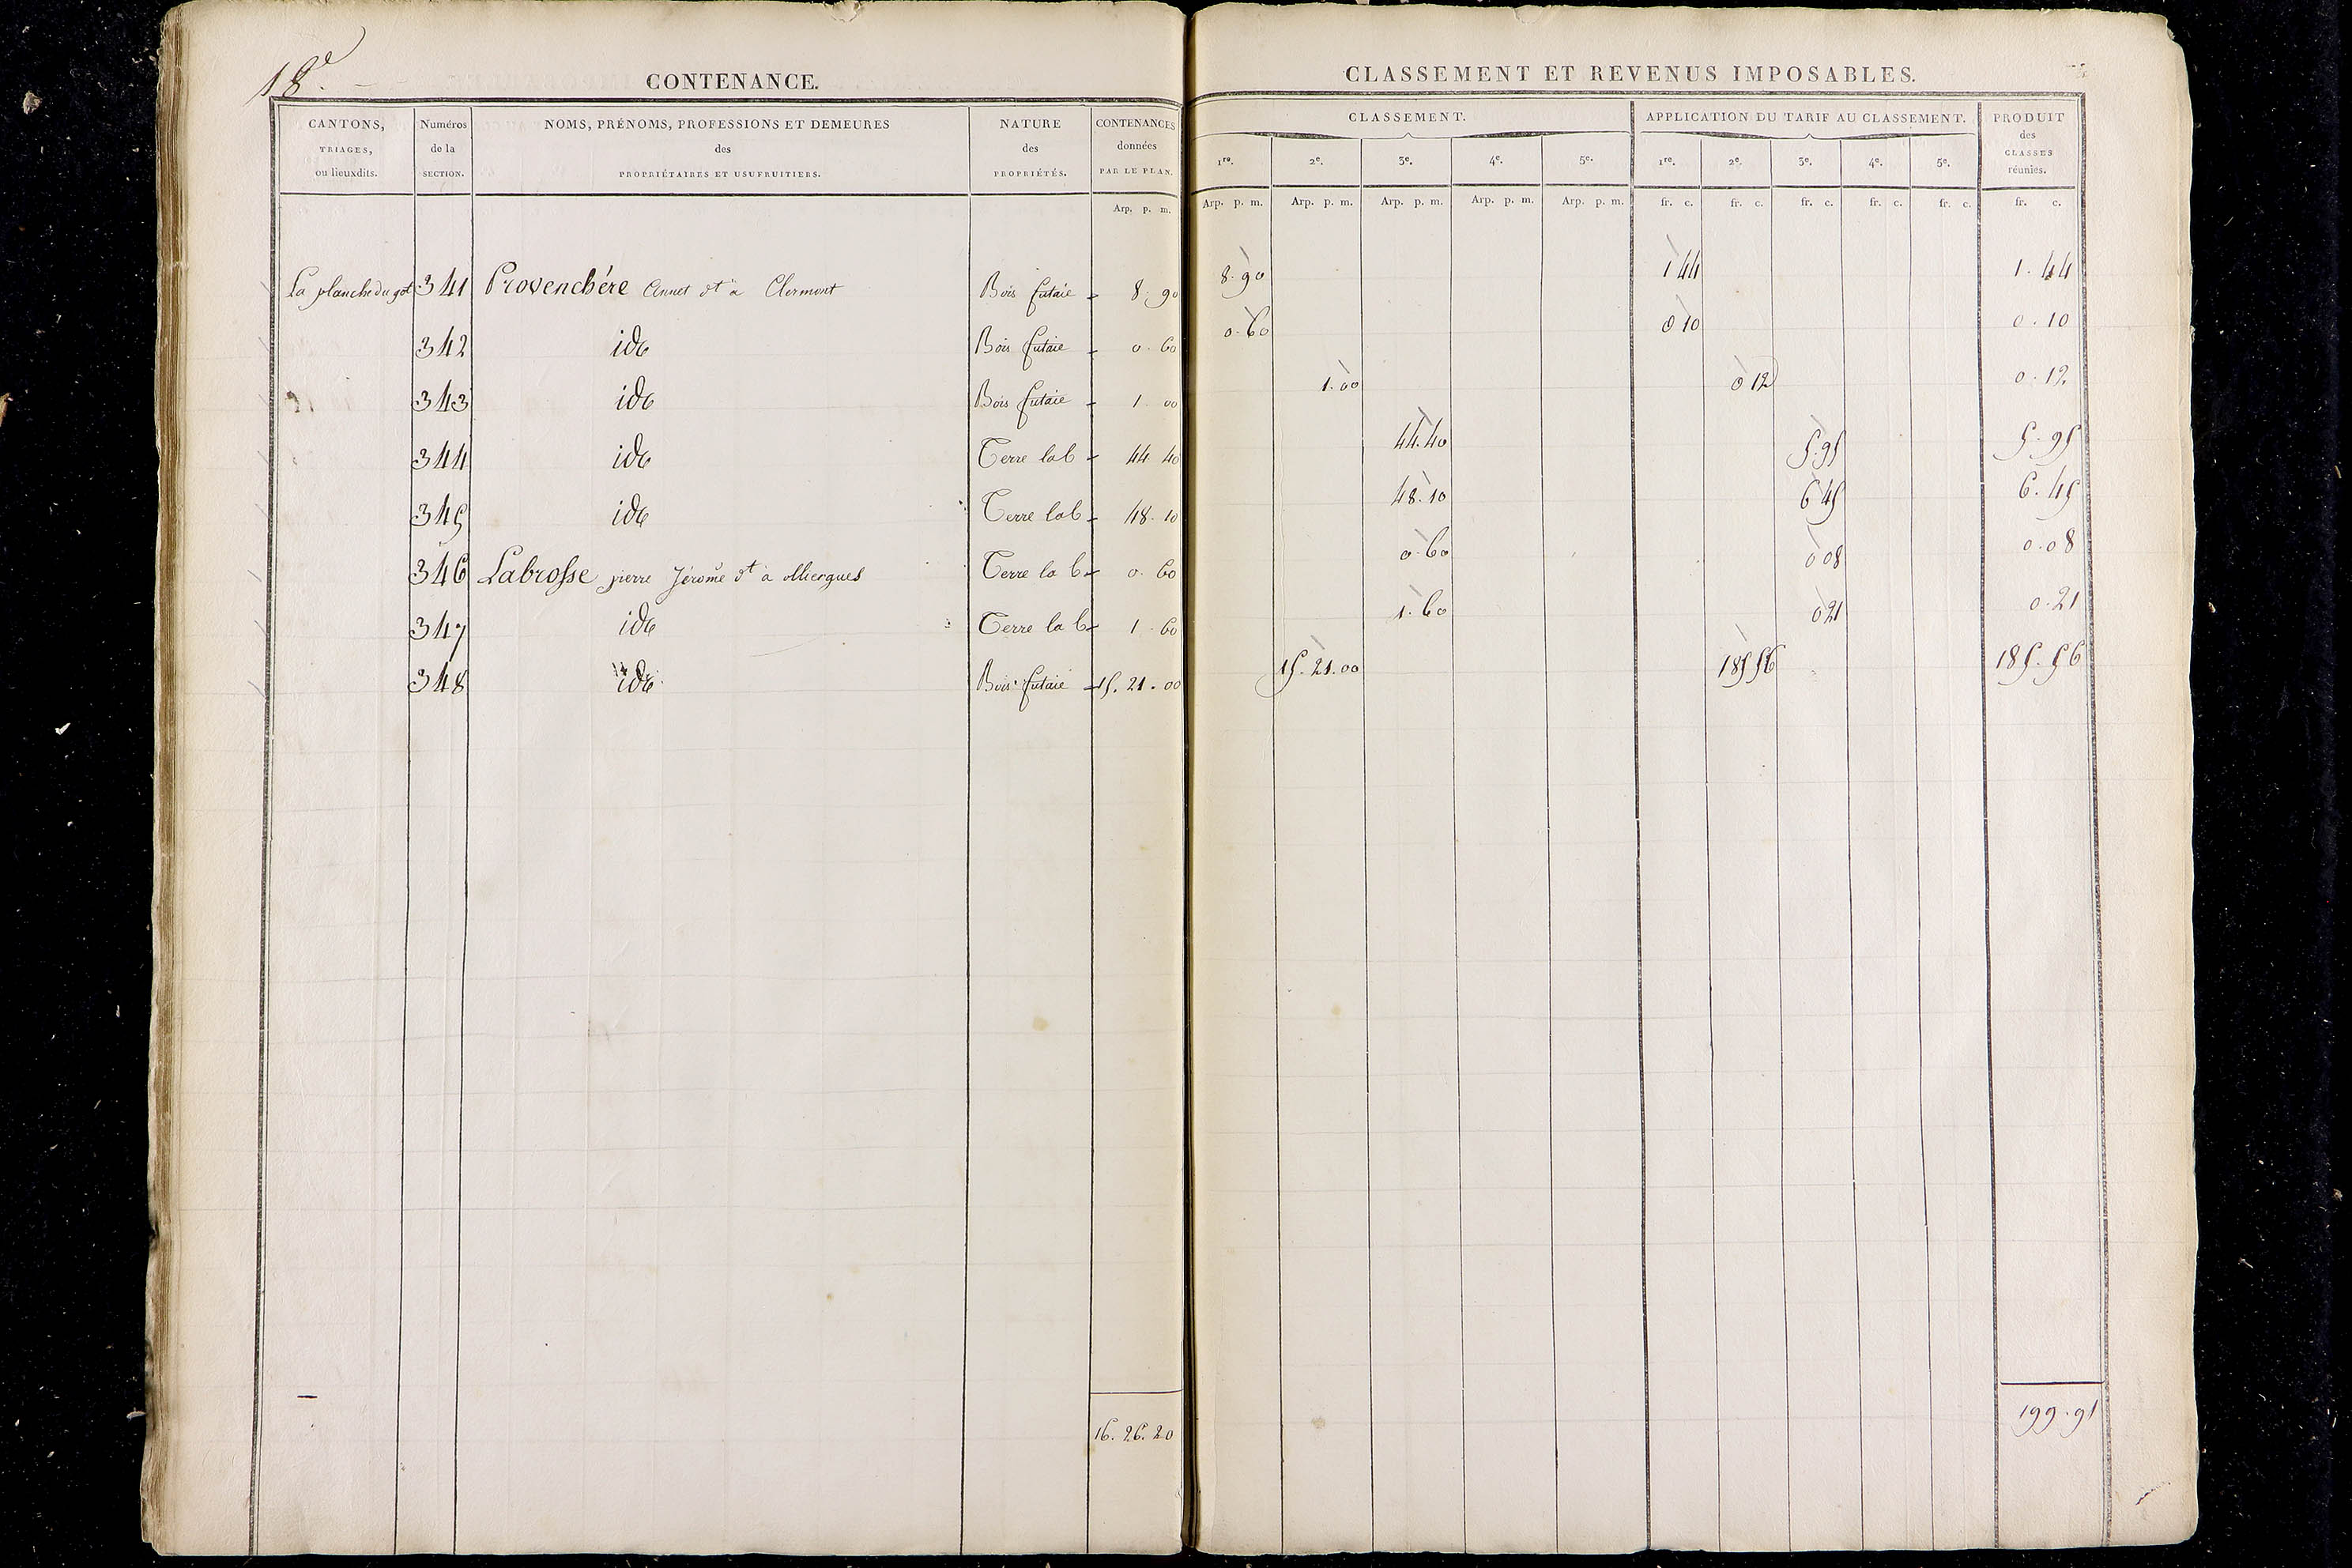 18e.
CONTENANCE.
CLASSEMENT ET REVENUS IMPOSABLES.
CANTONS, TRIAGES, ou lieuxdits. Numéros de la SECTION. NOMS, PRÉNOMS, PROFESSIONS ET DEMEURES des PROPRIÉTAIRES ET USUFRUITIERS. NATURE des PROPRIÉTÉS. CONTENANCES données PAR LE PLAN. CLASSEMENT. APPLICATION DU TARIF AU CLASSEMENT. PRODUIT des CLASSES réunies.
1re. 2e. 3e. 4e. 5e. 1re. 2e. 3e. 4e. 5e.
Arp. p. m. Arp. p. m. Arp. p. m. Arp. p. m. Arp. p. m. Arp. p. m. fr. c. fr. c. fr. c. fr. c. fr. c. fr. c.
La planche du got 341 Provenchére Annet dt à Clermont Bois futaie 8. 90 8. 90 1 44 1. 44
342 ide Bois futaie 0. 60 0. 60 0 10 0. 10
343 ide Bois futaie 1 00 1. 00 0 12 0. 12
344 ide Terre lab 44 40 44. 40 5. 95 5. 95
345 ide Terre lab 48. 10 48. 10 6 45 6. 45
346 Labrosse pierre Jérome dt à olliergues Terre lab 0. 60 0. 60 0 08 0. 08
347 ide Terre lab 1. 60 1. 60 0 21 0. 21
348 ide Bois futaie 15. 21. 00 15. 21. 00 185 56 185. 56
16. 26. 20 199. 91